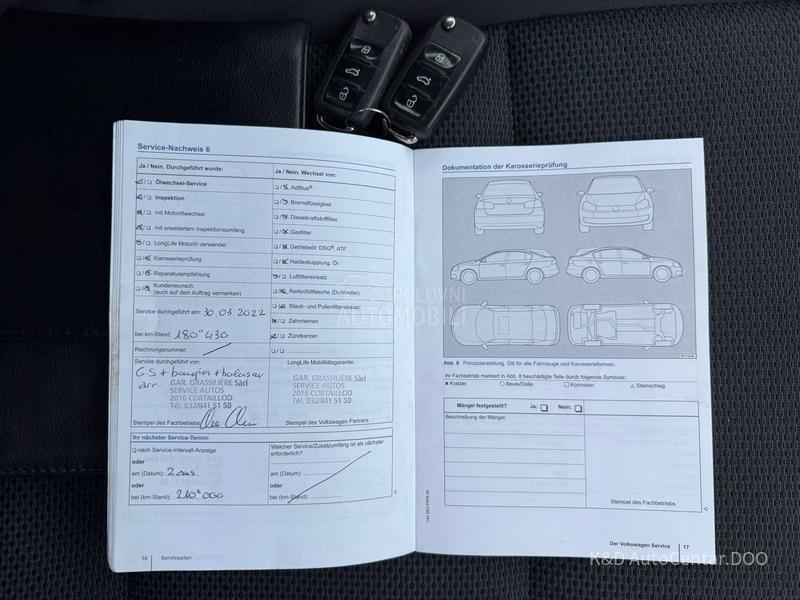 Service-Nachweis 6
Ja / Nein. Durchgeführt wurde:
Ölwechsel-Service
Inspektion
mit Motorölwechsel
mit erweitertem Inspektionsumfang
LongLife Motoröl verwendet
Karosserieprüfung
Reparaturempfehlung
Kundenwunsch
(auch auf dem Auftrag vermerken)
Service durchgeführt am: 30.03.2022
bei km-Stand: 180"430
Rechnungsnummer:
Service durchgeführt von:
GS + bougies +
arr
GAR. GRASSILIÈRE Sàrl
SERVICE AUTOS
2016 CORTAILLOD
Tél. 032/841 51 50
Stempel des Fachbetriebs
Ihr nächster Service-Termin
nach Service-Intervall-Anzeige
oder
am (Datum): 2 ans
oder
bei (km-Stand): 210"000
Ja / Nein. Wechsel von:
AdBlue®
Bremsflüssigkeit
Dieselkraftstofffilter
Gasfilter
Getriebeöl: DSG®, ATF
Haldexkupplung: Öl
Luftfiltereinsatz
Reifenfüllflasche (Dichtmittel)
Staub- und Pollenfiltereinsatz
Zahnriemen
Zündkerzen
LongLife Mobilitätsgarantie:
GAR. GRASSILIÈRE Sàrl
SERVICE AUTOS
2016 CORTAILLOD
Tél. 032/841 51 50
Stempel des Volkswagen Partners
Welcher Service/Zusatzumfang ist als nächster
erforderlich?
am (Datum):
oder
bei (km-Stand):
16 Serviceplan
Dokumentation der Karosserieprüfung
Abb. 8 Prinzipdarstellung. Gilt für alle Fahrzeuge und Karosserieformen.
Ihr Fachbetrieb markiert in Abb. 8 beschädigte Teile durch folgende Symbole:
× Kratzer ○ Beule/Delle □ Korrosion △ Steinschlag
Mängel festgestellt? Ja: Nein:
Beschreibung der Mängel:
Stempel des Fachbetriebs
Der Volkswagen Service 17
POLOVNI
AUTOMOBILI
K&D AutoCentar.DOO